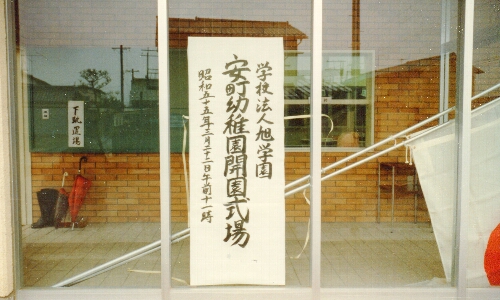 学校法人旭学園
安町幼稚園開園式場
昭和五十五年三月二十二日午前十一時
下靴置場